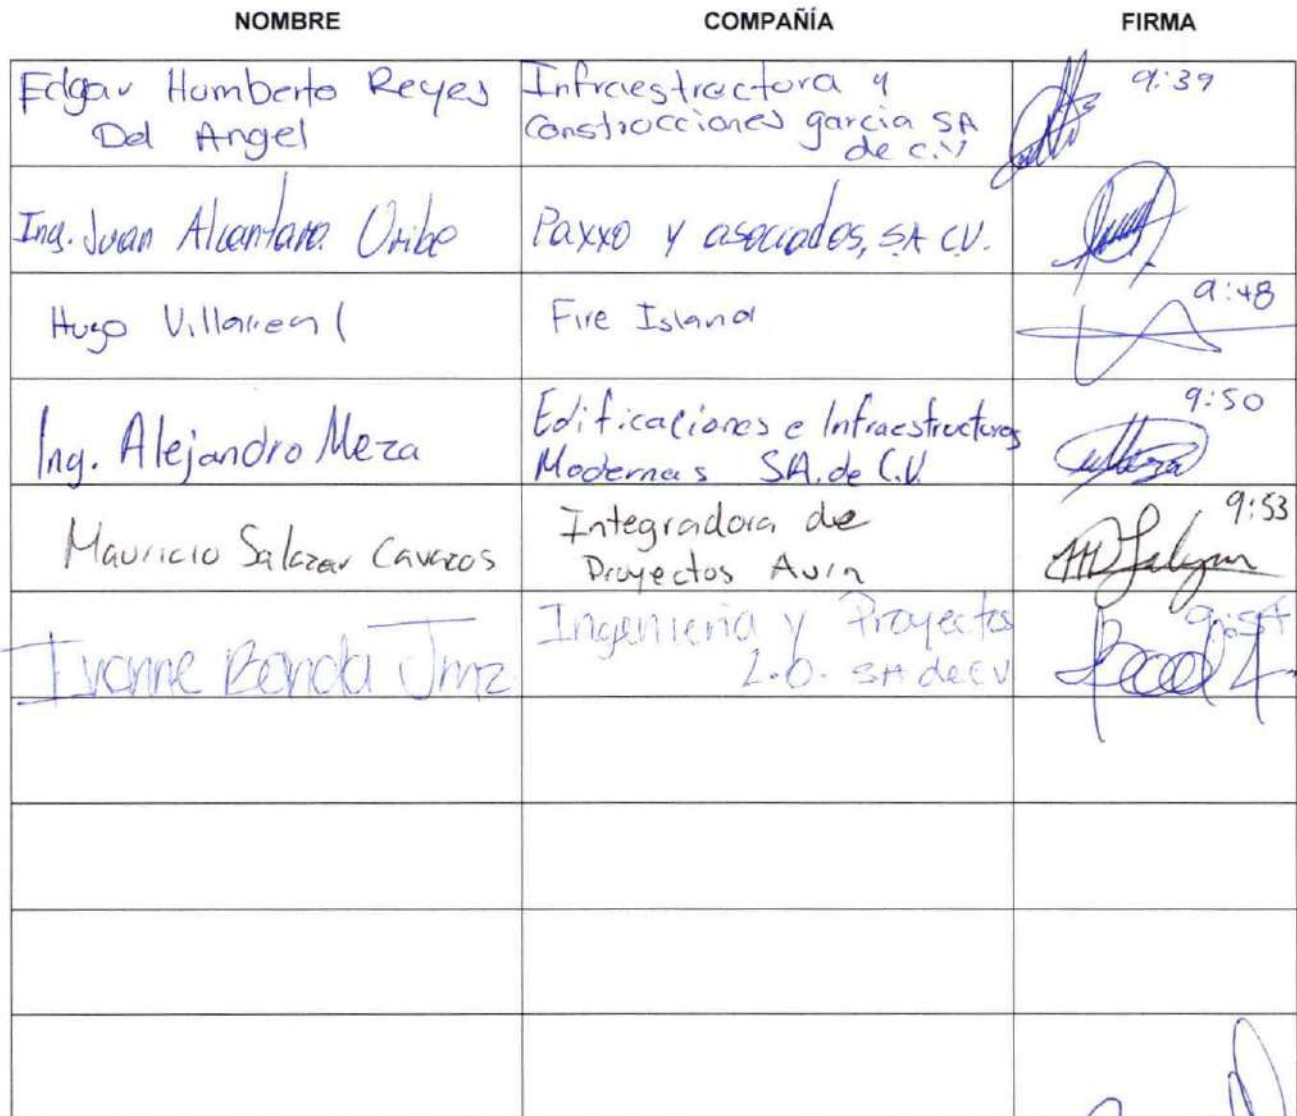 NOMBRE COMPAÑÍA FIRMA
Edgar Humberto Reyes
Del Angel
Infraestructura y
Construcciones garcia SA
de C.V
9:39
Ing. Juan Alcantara Uribe
Paxxo y asociados, SA CV.
Hugo Villarreal
Fire Island
9:48
Ing. Alejandro Meza
Edificaciones e Infraestructuras
Modernas SA. de C.V.
9:50
Mauricio Salazar Cavazos
Integradora de
Proyectos Avin
9:53
Ivonne Banda Jmz
Ingenieria y Proyectos
L.O. SA de CV
9:54